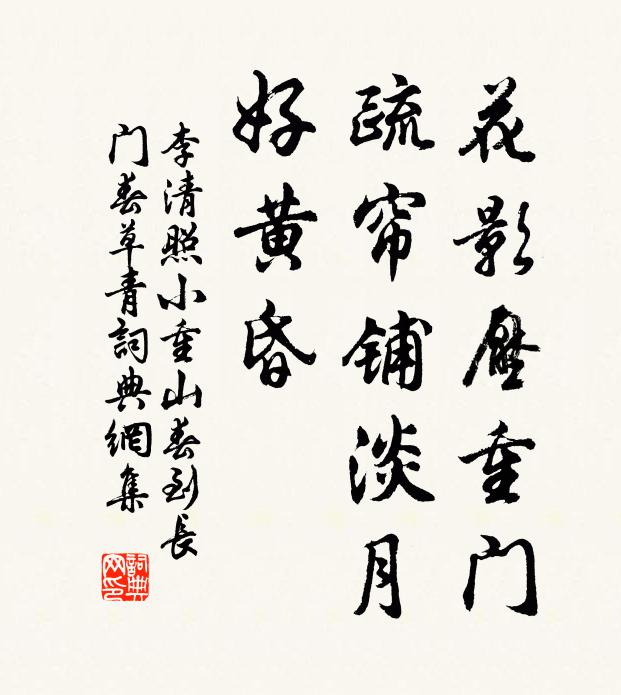 花影壓重门
疏帘铺淡月
好黄昏
李清照小重山春到長
门春草青詞典網集
詞典
网印